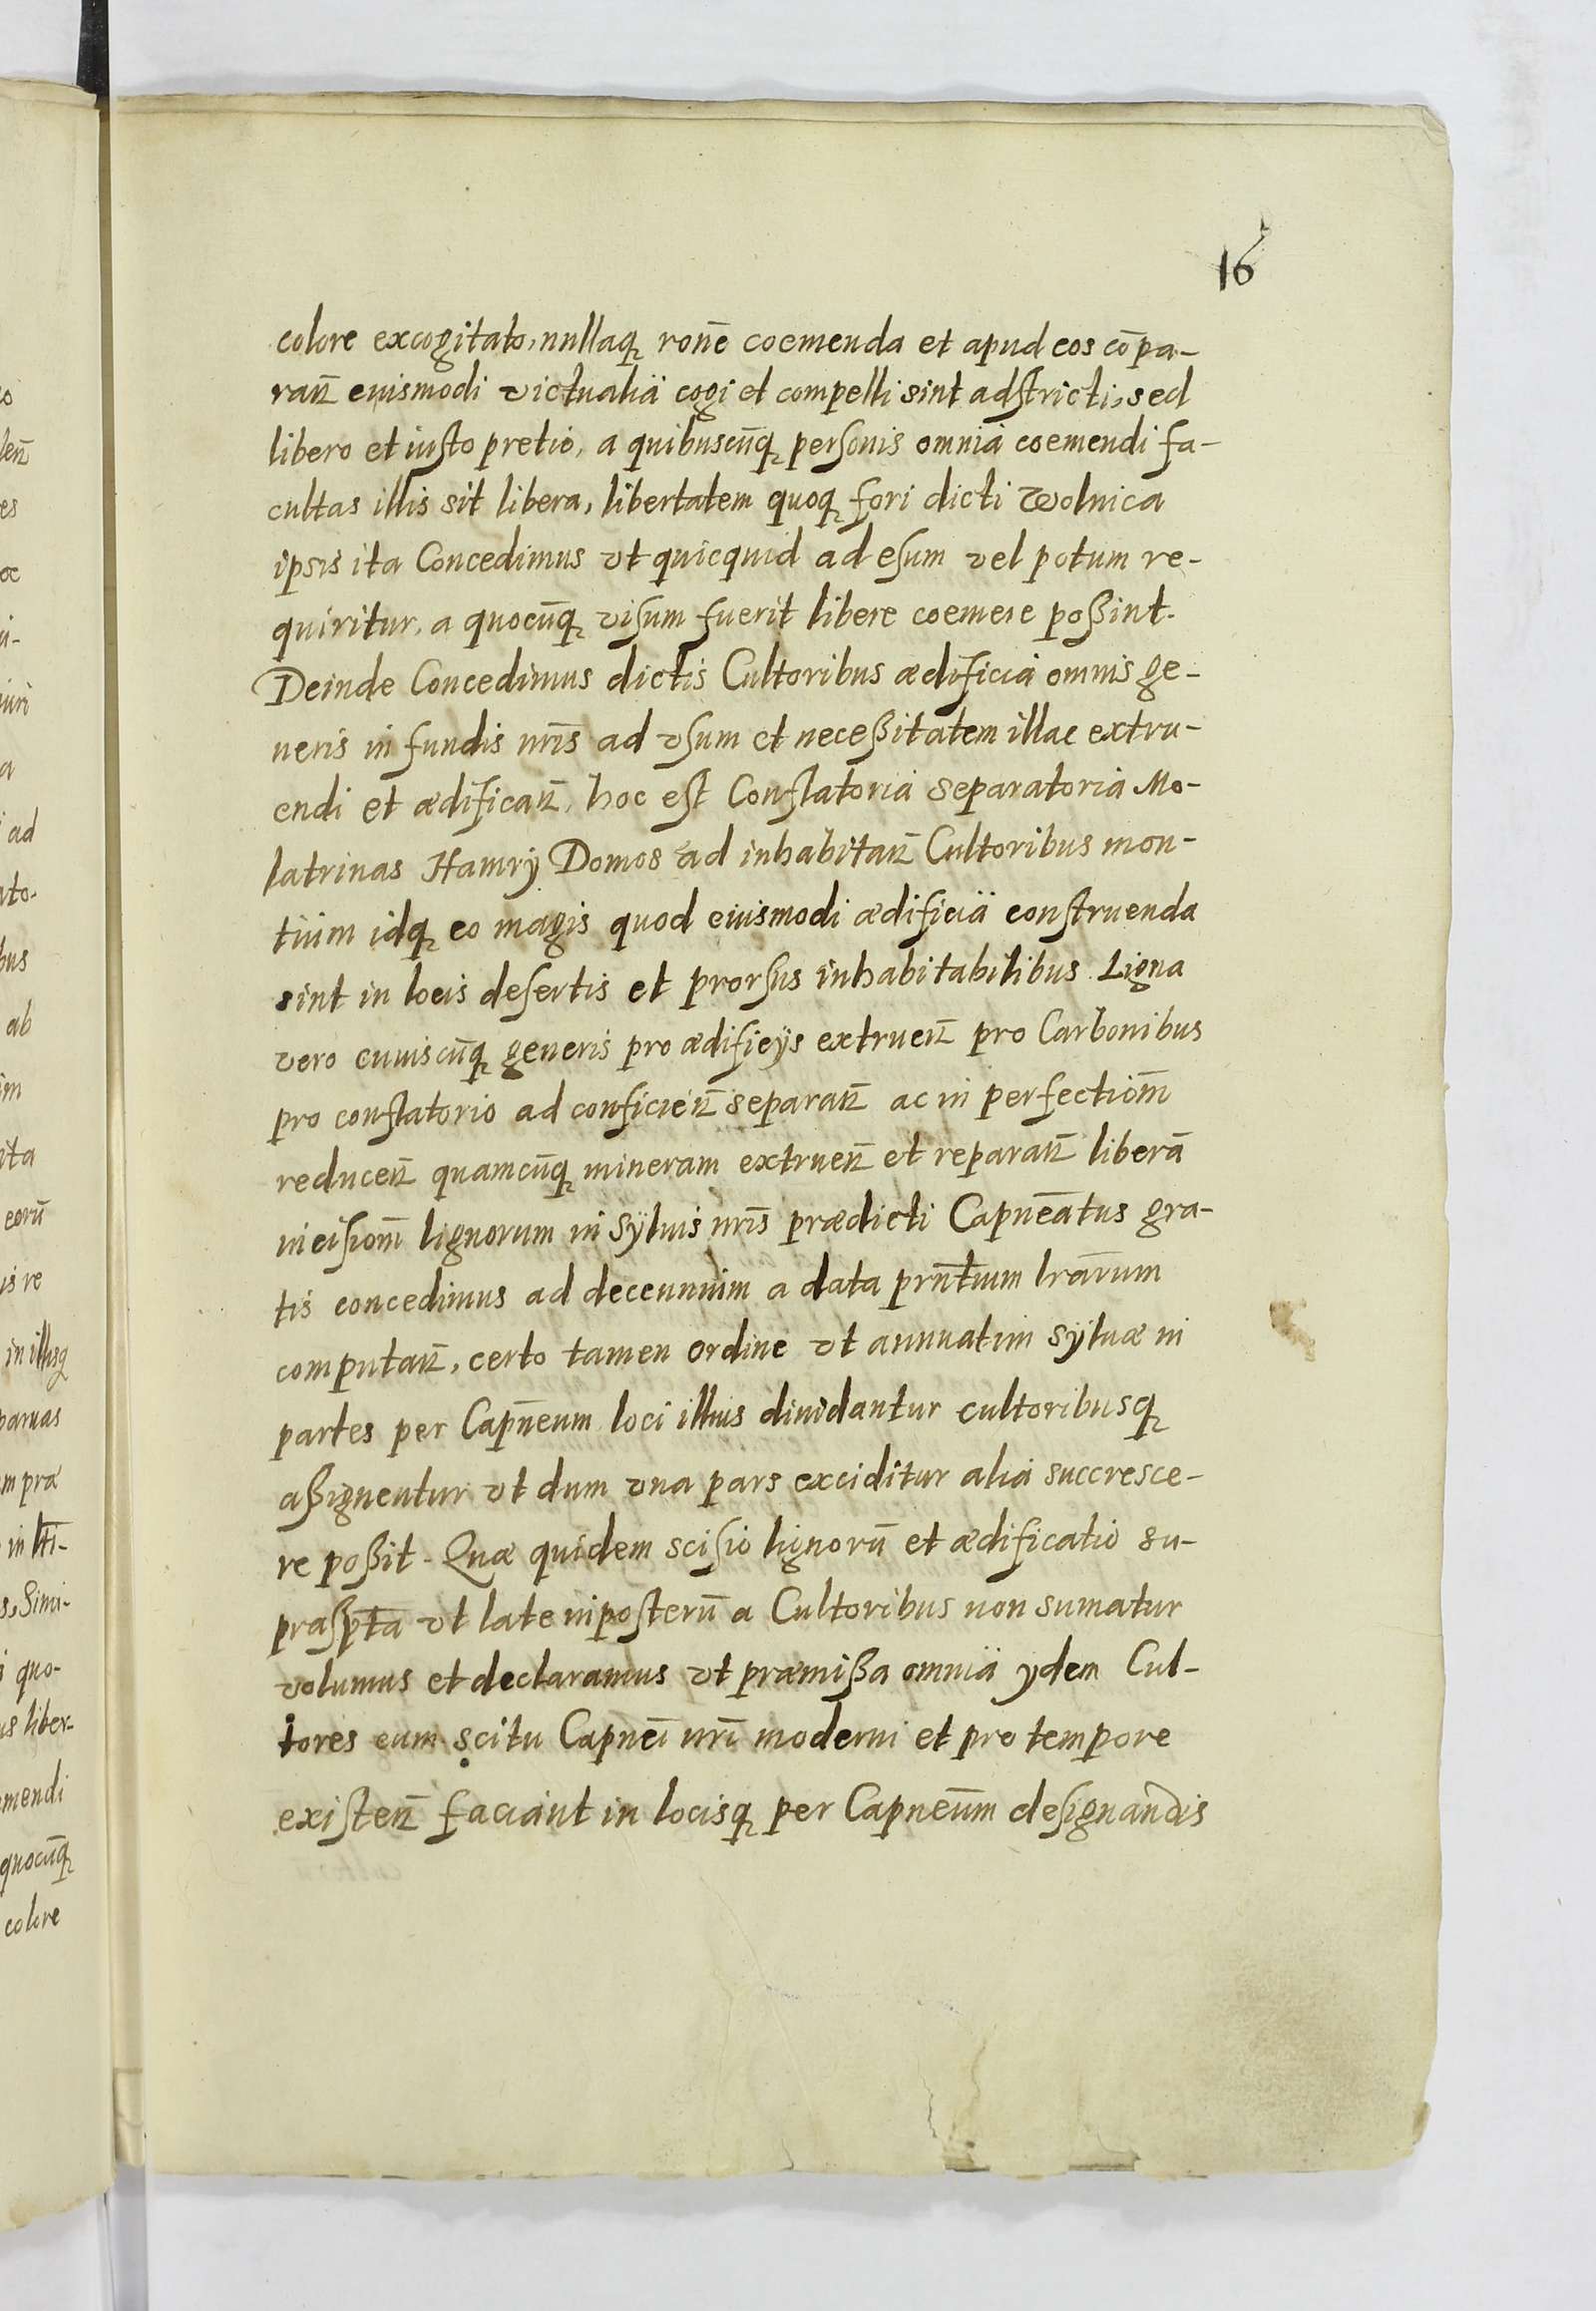 16
colore excogitato, nullaq₃ ronē coemenda et apud eos cōpa-
ran̄ euismodi victualia cogi et compelli sint adstricti, sed
libero et iusto pretio, a quibuscūq₃ personis omnia coemendi fa-
cultas illis sit libera, libertatem quoq₃ fori dicti Wolnica
ipsis ita Concedimus vt quicquid ad esum vel potum re-
quiritur, a quocūq₃ visum fuerit libere coemere poßint.
Deinde Concedimus dictis Cultoribus ædificia omnis ge-
neris in fundis nr̄is ad vsum et neceßitatem illac extru-
endi et ædifican̄, hoc est Conflatoria separatoria Mo-
latrinas Hamrÿ Domos ad inhabitan̄ Cultoribus mon-
tium idq₃ eo magis quod eiusmodi ædificia construenda
sint in locis desertis et prorsus inhabitabilibus Ligna
vero cuiuiscūq₃ generis pro ædificÿs extruen̄ pro Carbonibus
pro conflatorio ad conficien̄ separan̄ ac in perfectiom̄
reducen̄ quamcūq₃ mineram extruen̄ et reparan̄ liberā
incisiom̄ lignorum in sÿluis nr̄is prædicti Capneātus gra-
tis concedimus ad decennium a data prn̄tium lrārum
computan̄, certo tamen ordine vt annuatim sÿluæ in
partes per Capn̄eum loci illius diuidantur cultoribusq₃
aßignentur vt dum vna pars exciditur alia succresce-
re poßit. Quæ quidem scisio lignorū et ædificatio su-
praßp̄ta vt late inposterū a Cultoribus non sumatur
volumus et declaramus vt præmißa omnia ÿdem Cul-
tores cum scitu Capneī nr̄i moderni et pro tempore
existen̄ faciant in locisq₃ per Capneūm designandis